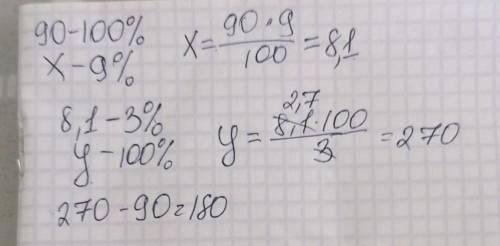 90-100%
x-9%
x = 90·9 / 100 = 8,1
8,1-3%
y-100%
2,7
y = 8,1·100 / 3 = 270
270-90=180